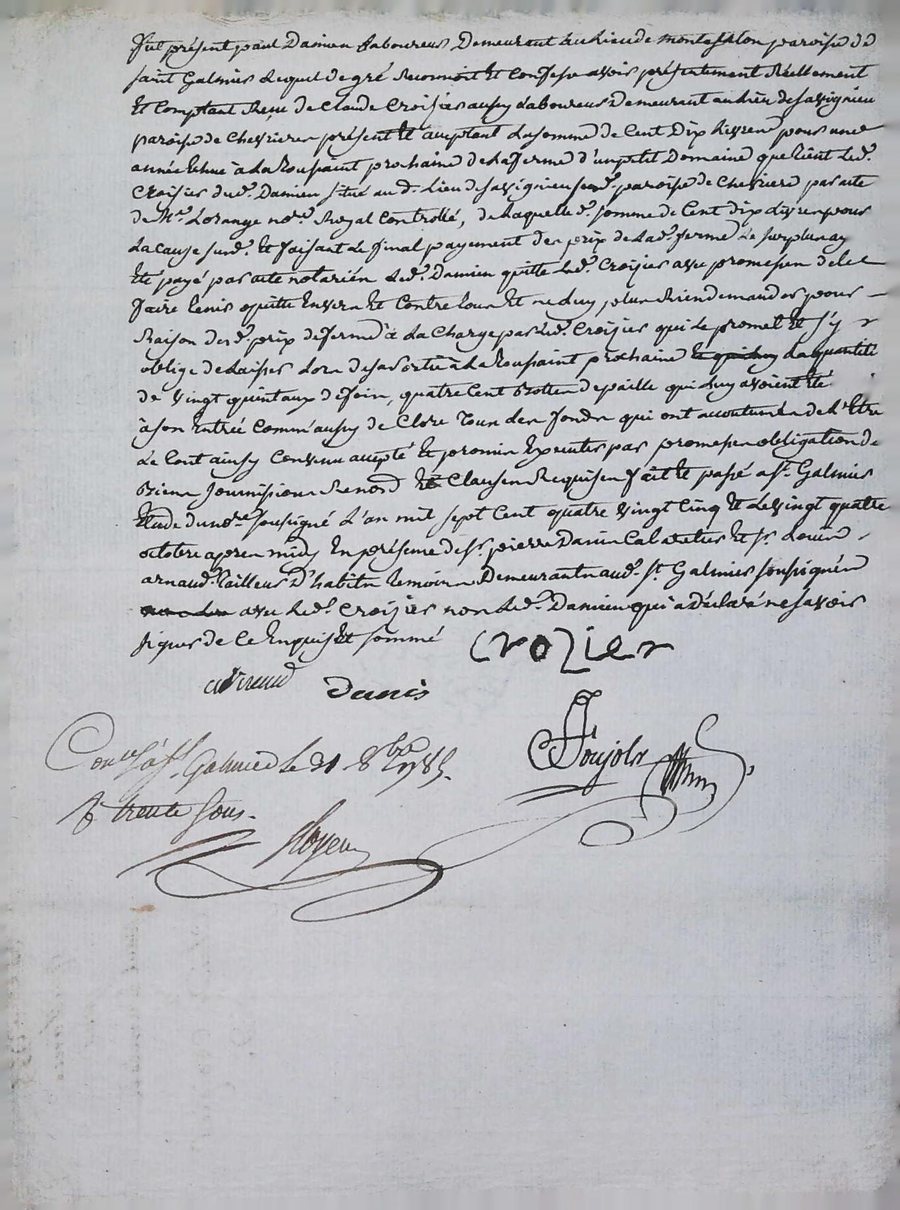 fut présent paul Damien Laboureur Demeurant au Lieu de paroisse de
saint Galmier Lequel de gré Reconnoit et Confesse avoir présentement Réellement
Et Comptant Reçu de Claude Croisier aussy Laboureur Demeurant au Lieu de Savignieu
paroisse de Chevrieres présent Et acceptant La somme de Cent Dix Livres pour une
année Echue à La Toussaint prochaine de La ferme d'un petit Domaine que tient Led.
Croisier dud. Damien situé aud. Lieu de Savignieu susd. paroisse de Chevriere par acte
de Me. Lorange nore. Royal Controllé, de Laquelle d. somme de Cent dix Livres pour
La cause susd. Et faisant Le final payement des prix de Lad. ferme Le surplus ay
Eté payé par acte notarié Led. Damien quitte Led. Croisier avec promesse de Le
faire tenir quitte Envers Et Contre tous Et ne Luy plus Rien demander pour
Raison desd. prix de ferme à La Charge par Led. Croisier qui Le promet Et s'y
oblige de Laisser Lors de sa sortie à La Toussaint prochaine La quantité
de vingt quintaux de foin, quatre Cent Bottes de paille qui Luy avoient Eté
à son Entrée Comm'aussy de Clore Tous Les fonds qui ont accoutumés de L'être
Le tout ainsy Convenu accepté Et promis Executer par promesses obligation de
Biens soumissions Renond. Et Clauses Requises fait Et passé a St. Galmier
Etude du nore. soussigné L'an mil sept Cent quatre vingt Cinq Et Le vingt quatre
octobre apres midy En présence de Sr. pierre Danis Et Sr. Louis
arnaud Tailleur D'habits temoins Demeurants aud. St. Galmier soussignés
avec Led. Croisier non Led. Damien qui a Déclaré ne savoir
signer de Ce Enquis Et sommé
Crozier
arnaud Danis
Coujols
Conlé à St. Galmier Le 31 8bre 1785.
R trente sous.